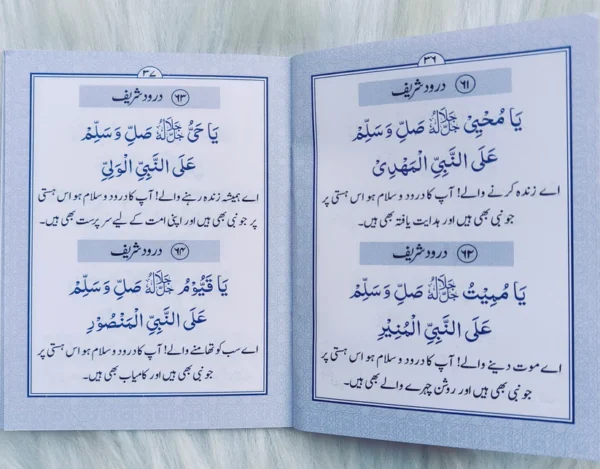 ۳۶
۶۱ درود شریف
يَا مُحْيِیْ جَلَّ جَلَالُهٗ صَلِّ وَسَلِّمْ
عَلَى النَّبِيِّ الْمَهْدِیْ
اے زندہ کرنے والے! آپ کا درود و سلام ہو اس ہستی پر
جو نبی بھی ہیں اور ہدایت یافتہ بھی ہیں۔
۶۲ درود شریف
يَا مُمِيْتُ جَلَّ جَلَالُهٗ صَلِّ وَسَلِّمْ
عَلَى النَّبِيِّ الْمُنِيْرِ
اے موت دینے والے! آپ کا درود و سلام ہو اس ہستی پر
جو نبی بھی ہیں اور روشن چہرے والے بھی ہیں۔
۳۷
۶۳ درود شریف
يَا حَيُّ جَلَّ جَلَالُهٗ صَلِّ وَسَلِّمْ
عَلَى النَّبِيِّ الْوَلِيِّ
اے ہمیشہ زندہ رہنے والے! آپ کا درود و سلام ہو اس ہستی
پر جو نبی بھی ہیں اور اپنی امت کے لیے سرپرست بھی ہیں۔
۶۴ درود شریف
يَا قَيُّوْمُ جَلَّ جَلَالُهٗ صَلِّ وَسَلِّمْ
عَلَى النَّبِيِّ الْمَنْصُوْرِ
اے سب کو تھامنے والے! آپ کا درود و سلام ہو اس ہستی پر
جو نبی بھی ہیں اور کامیاب بھی ہیں۔